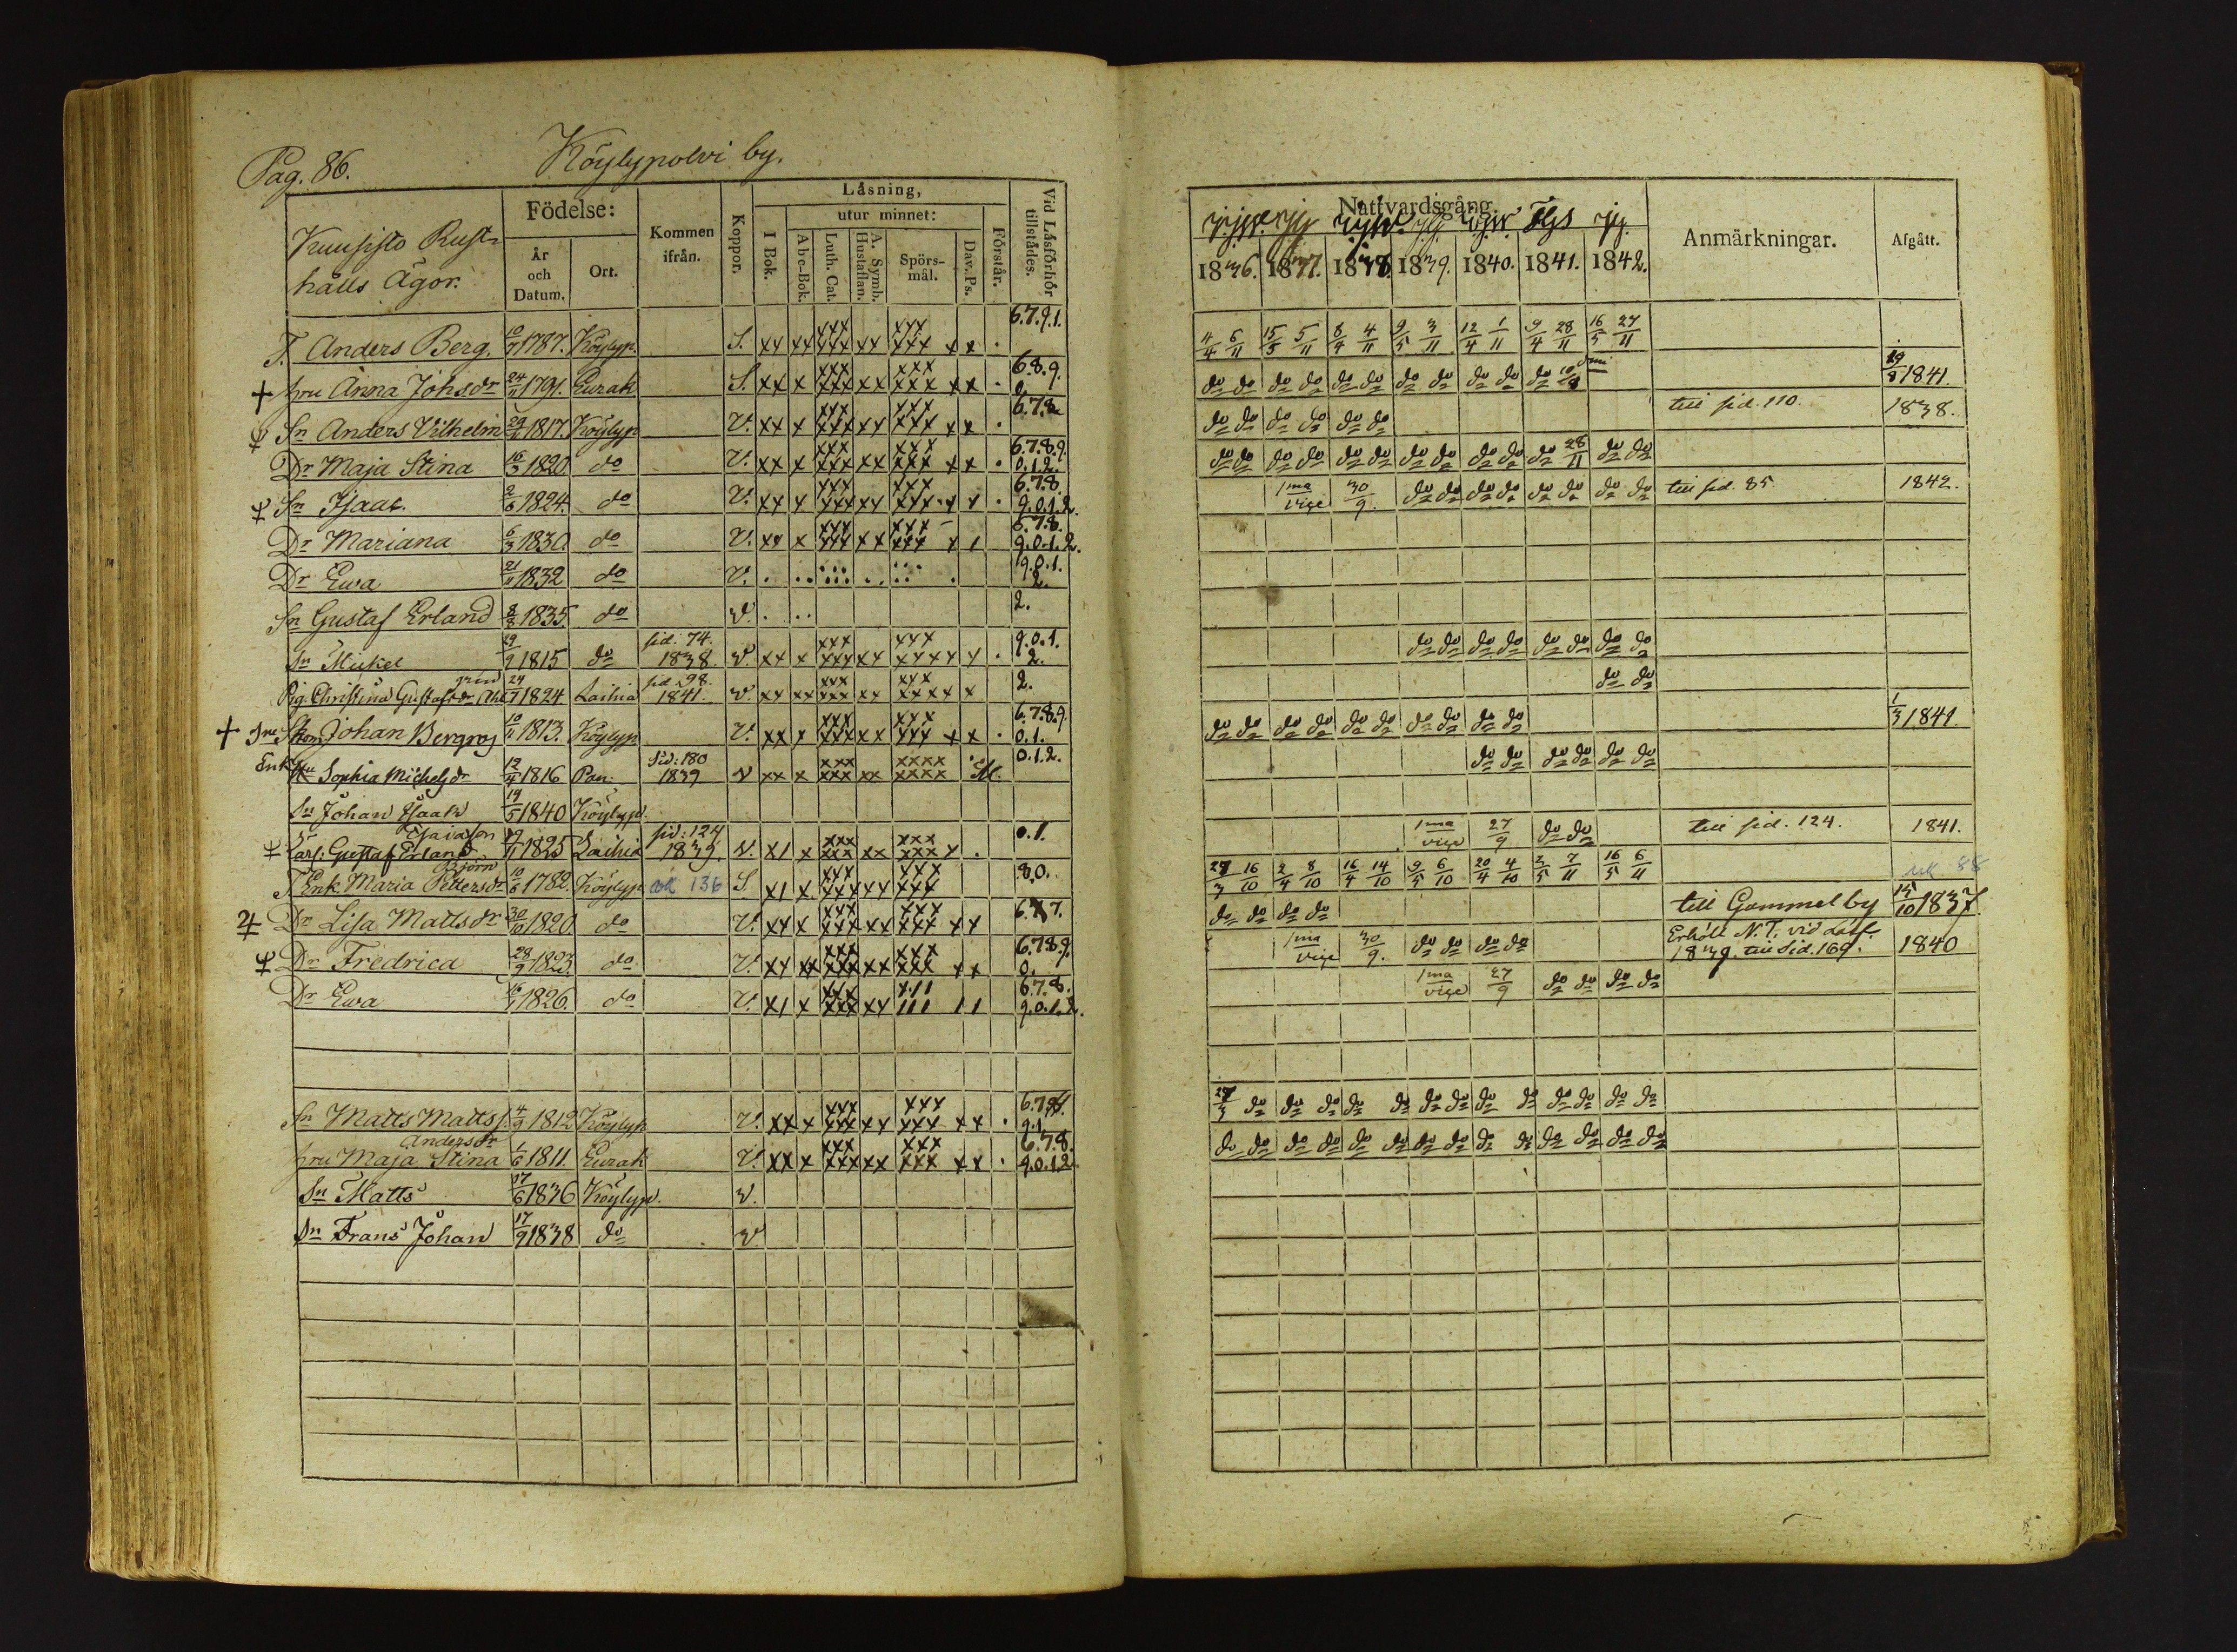 Pag. 86.
Köylypolvi by.
Kuusisto Rust-
hålls Ägor.
Födelse:
År och Datum.
Ort.
Kommen ifrån.
Koppor.
Läsning,
I Bok.
utur minnet:
Abc-Bok.
Luth. Cat.
A. Symb. Hustaflan.
Spörs-mål.
Dav. Ps.
Förstår.
Vid Läsförhör tillstädes.
Nattvardsgång.
1836. 1837. 1838. 1839. 1840. 1841. 1842.
Anmärkningar.
Afgått.
T. Anders Berg. 10/11 1787. Köylyp. S. xx xx xxx xxx xx xxx xxx x x . 6.7.9.1. 4/4 6/11 15/5 5/11 8/4 4/11 9/5 3/11 12/4 1/11 9/4 28/11 16/5 27/11
+ hru Anna Johsdr 24/11 1791. Eurak S. xx x xxx xxx xx xxx xxx x x . 6.8.9. 0. do do do do do do do do do do do 19/8 1841.
Sn Anders Vilhelm 29/5 1817. Köylyp V. xx x xxx xxx xx xxx xxx x x . 6.7.8. do do do do do do till sid. 110. 1838.
Dr Maja Stina 16/3 1820. do V. xx x xxx xxx xx xxx xxx x x . 6.7.8.9. 0.1.2. do do do do do do do do do do do 28/11 do do
Sn Isaac. 2/6 1824. do V. xx x xxx xxx xx xxx xxx x x . 6.7.8. 9.0.1.2. 1ma vice 30/9. do do do do do do do do till sid. 85. 1842.
Dr Mariana 6/3 1830. do V. xx x xxx xxx xx xxx xxx x 1 6.7.8. 9.0.1.2.
Dr Ewa 21/11 1832 do V. 9.0.1. 2.
Sn Gustaf Erland 8/8 1835. do V. 2.
Sn Mickel 29/9 1815 do sid. 74. 1838. V. xx x xxx xxx xx xxx xxxx x . 9.0.1. 2. do do do do do do do do
Pig. Christina Gustafsdr 24/7 1824 Laihia sid. 98. 1841. V. xx xx xxx xxx xx xxx xxxx x 2. do do
+ Johan Bergroj 10/11 1813. Köylyp V. xx x xxx xxx xx xxx xxx x x . 6.7.8.9. 0.1. do do do do do do do do do do 1/3 1841.
Enk. Sophia Michelsdr 12/4 1816 Pun. Sid: 180 1839 V xx x xxx xxx xx xxxx xxxx 0.1.2. do do do do do do
Sn Johan Isaak 19/5 1840 Köylyp.
Esaiason
Gustaf Erland 29/11 1825 Laihia sid: 124 1839. V. x1 x xxx xxx xx xxx xxx x . 0.1. 1ma vice 27/9 do do till sid. 124. 1841.
Björn
T. Enk. Maria Pettersdr 10/6 1782. Köylyp 136 S. x1 x xxx xxx xx xxx xxx 8.0. 27/3 16/10 2/4 8/10 16/4 14/10 9/5 6/10 20/4 4/10 2/5 7/11 16/5 6/11 88
Dr Lisa Mattsdr 30/10 1820. do V. xx x xxx xxx xx xxx xxx x x 6.7. do do do do till Gammelby 15/10 1837.
Dr Fredrica 28/9 1823. do V. xx xx xxx xxx xx xxx xxx x x 6.7.8.9. 0. 1ma vice 30/9. do do do do Erhöll N. T. vid Läsf. 1839. till Sid. 169. 1840
Dr Ewa 16/1 1826. do V. x1 x xxx xxx xx x11 111 1 1 6.7.8. 9.0.1.2. 1ma vice 27/9 do do do do
Sn Matts Matts s. 4/9 1812 Köylyp V. xx x xxx xxx xx xxx xxx x x . 6.7.8. 9.1. 27/3 do do do do do do do do do do do do do
Andersdr
hru Maja Stina 1/6 1811. Eurak V. xx x xxx xxx xx xxx xxx x x . 6.7.8. 9.0.1.2. do do do do do do do do do do do do do do
Sn Matts 17/6 1836 Köylyp. V.
Sn Frans Johan 17/9 1838 do V